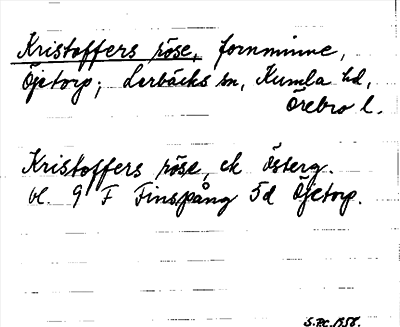 Kristoffers röse, fornminne,
Öjetorp; Lerbäcks sn, Kumla hd,
Örebro l.
Kristoffers röse, ek Österg.
bl. 9 F Finspång 5d Öjetorp.